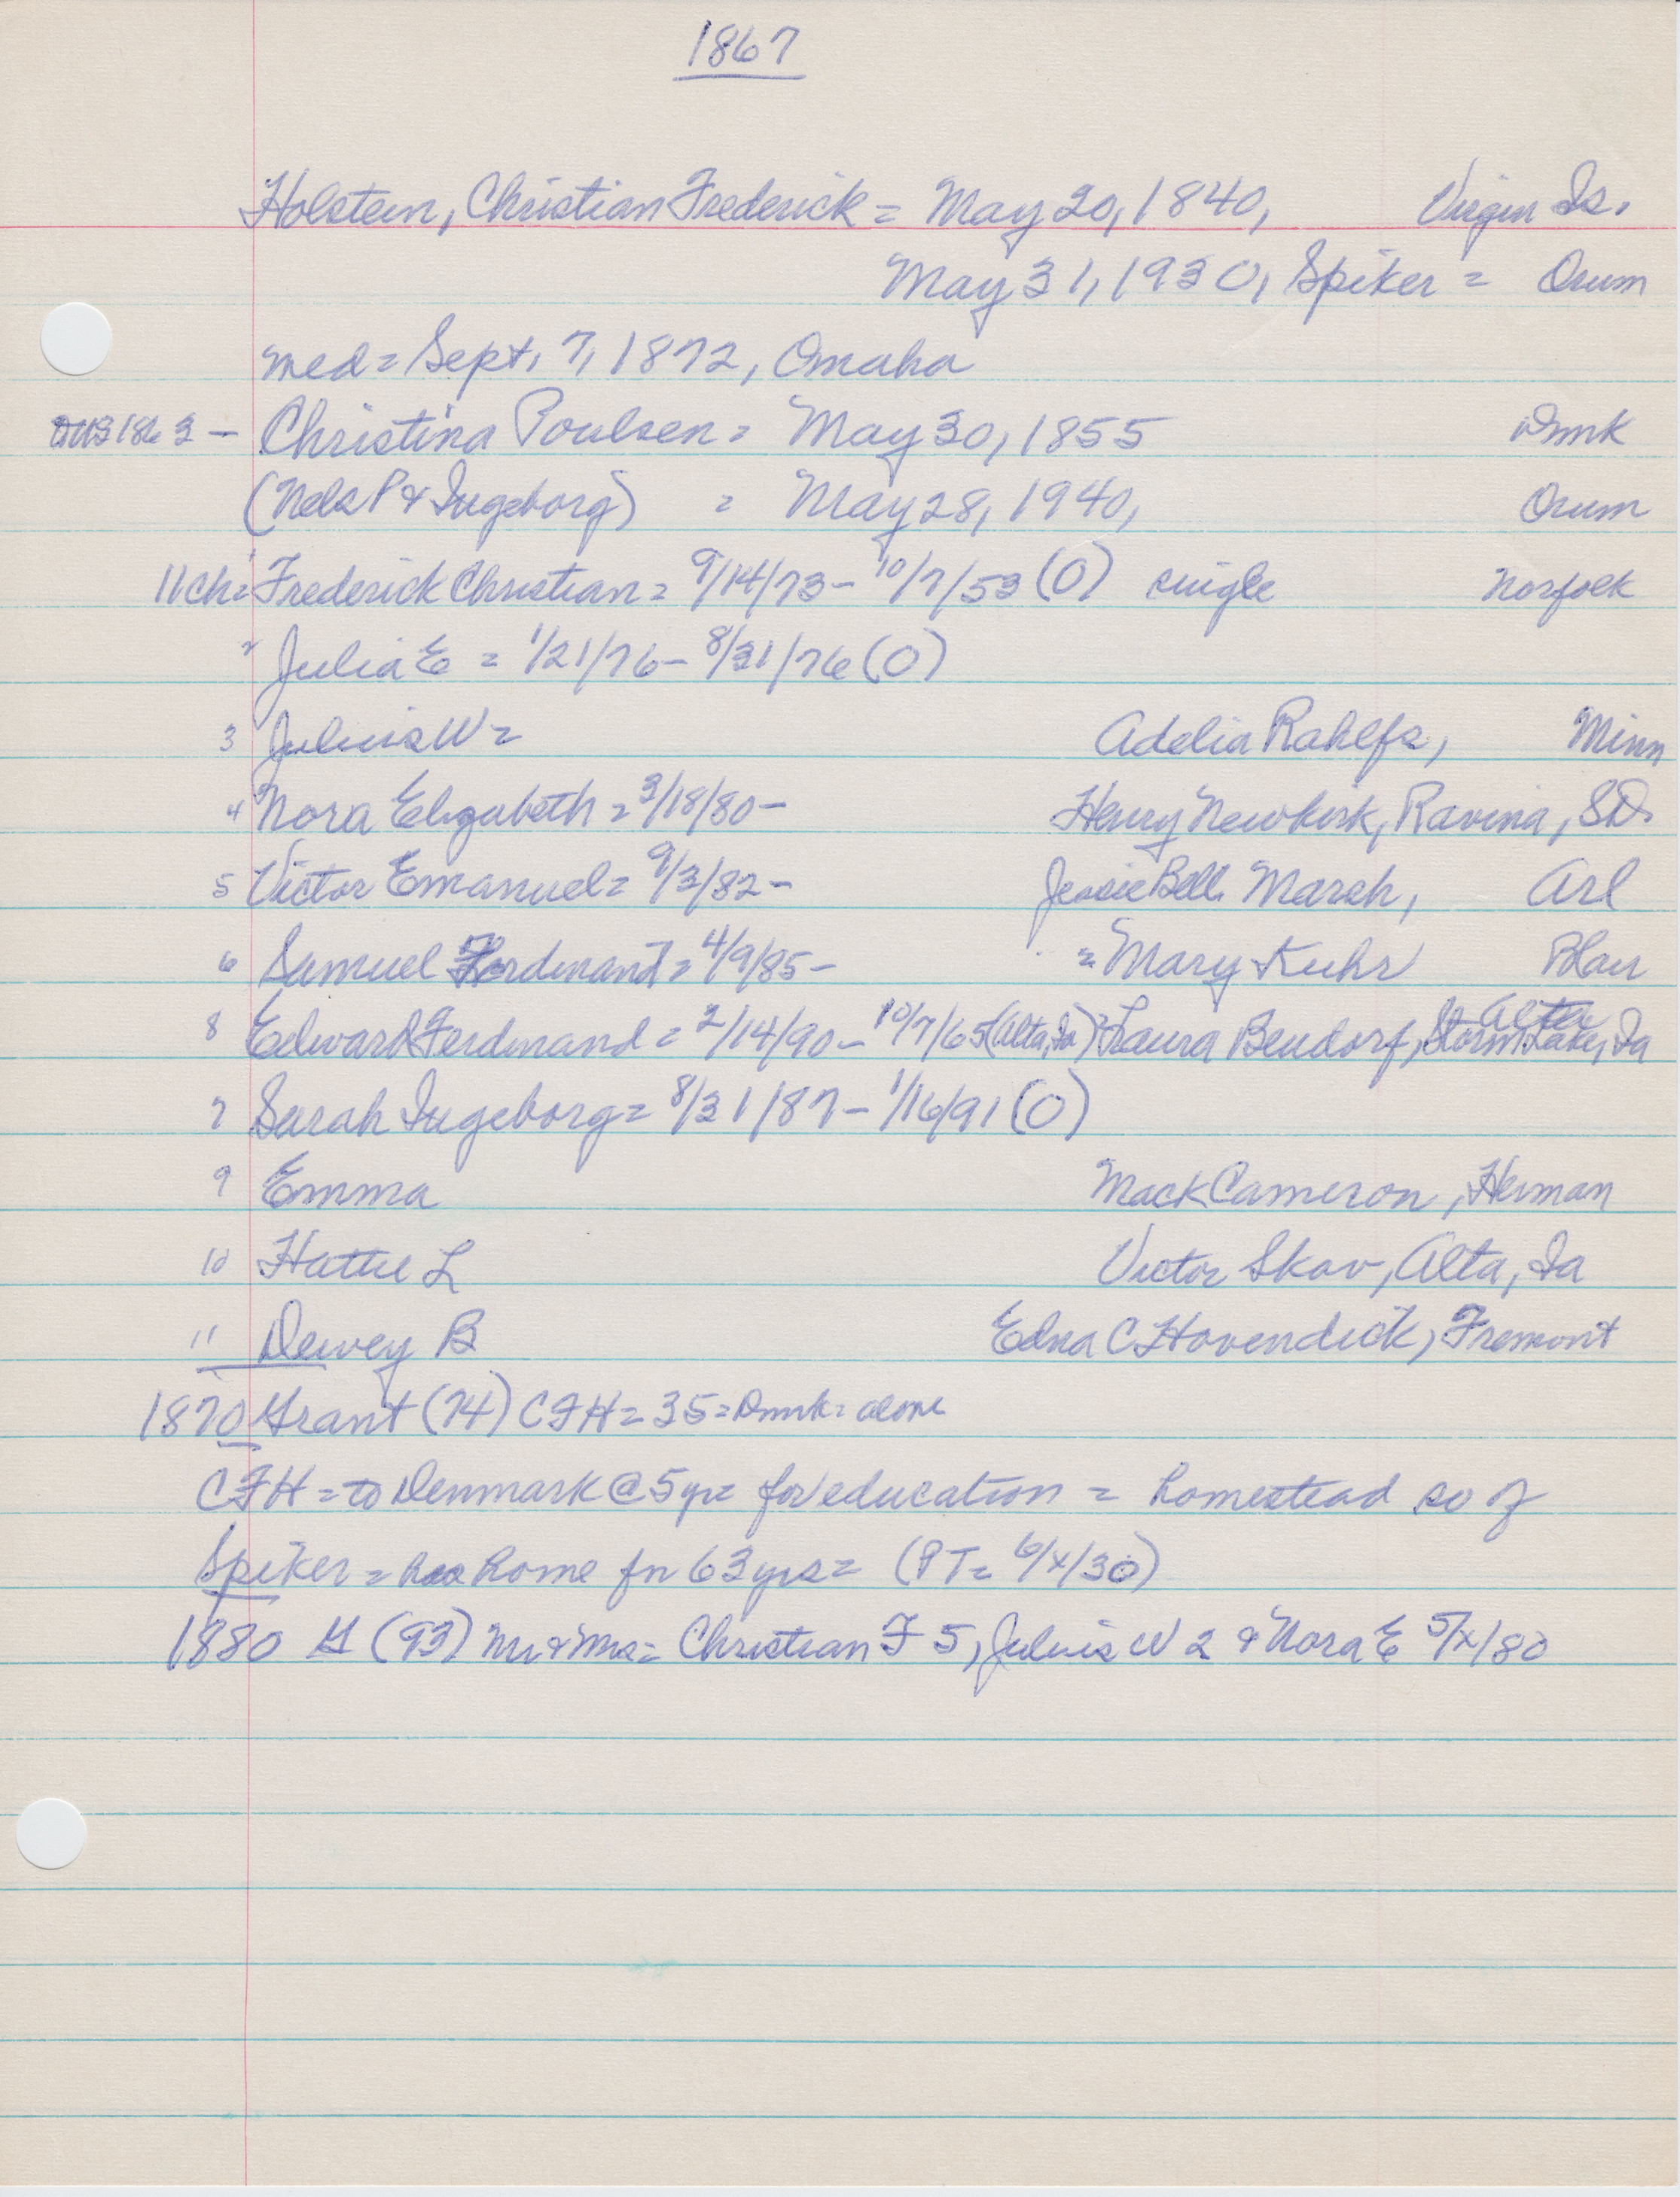 1867
Holstein, Christian Frederick = May 20, 1840, Virgin Is.
May 31, 1930, Spiker = Orum
med = Sept. 7, 1872, Omaha
1863 - Christina Poulsen = May 30, 1855 Dnmk
(Nels P & Ingeborg) = May 28, 1940, Orum
11 ch = 1 Frederick Christian = 9/14/73 - 10/7/53 (O) single Norfolk
2 Julia E = 1/21/76 - 8/31/76 (O)
3 Julius W = Adelia Rahlfs, Minn
4 Nora Elizabeth = 3/18/80 - Henry Newkirk, Ravina, SD.
5 Victor Emanuel = 9/3/82 - Jessie Bell Marsh, Arl
6 Samuel Ferdinand = 4/9/85 - = Mary Kuhr Blair
8 Edward Ferdinand = 2/14/90 - 10/7/65 (Alta, Ia) = Laura Bendorf, Storm Lake, Alta Ia
7 Sarah Ingeborg = 8/31/87 - 1/16/91 (O)
9 Emma Mack Cameron, Herman
10 Hattie L Victor Skov, Alta, Ia
11 Dewey B Edna C Hovendick, Fremont
1870 Grant (74) CFH = 35 = Dnmk = alone
CFH = to Denmark @ 5 yr = for education = homestead so of
Spiker = has home fn 63 yrs = (PT = 6/x/30)
1880 G (93) Mr & Mrs = Christian F 5, Julius W 2 & Nora E 5/x/80